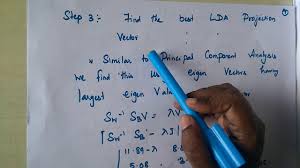 Step 3:- Find the best LDA Projection
Vector
" Similar to Principal Component Analysis
we find this using eigen Vectors having
largest eigen Val
Sw⁻¹ SB V = λV
| Sw⁻¹ SB - λI |
| 11.89-λ 8.
5.08